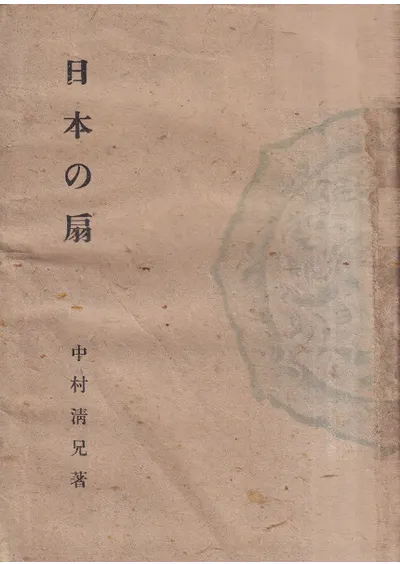 日本の扇
中村淸兄著